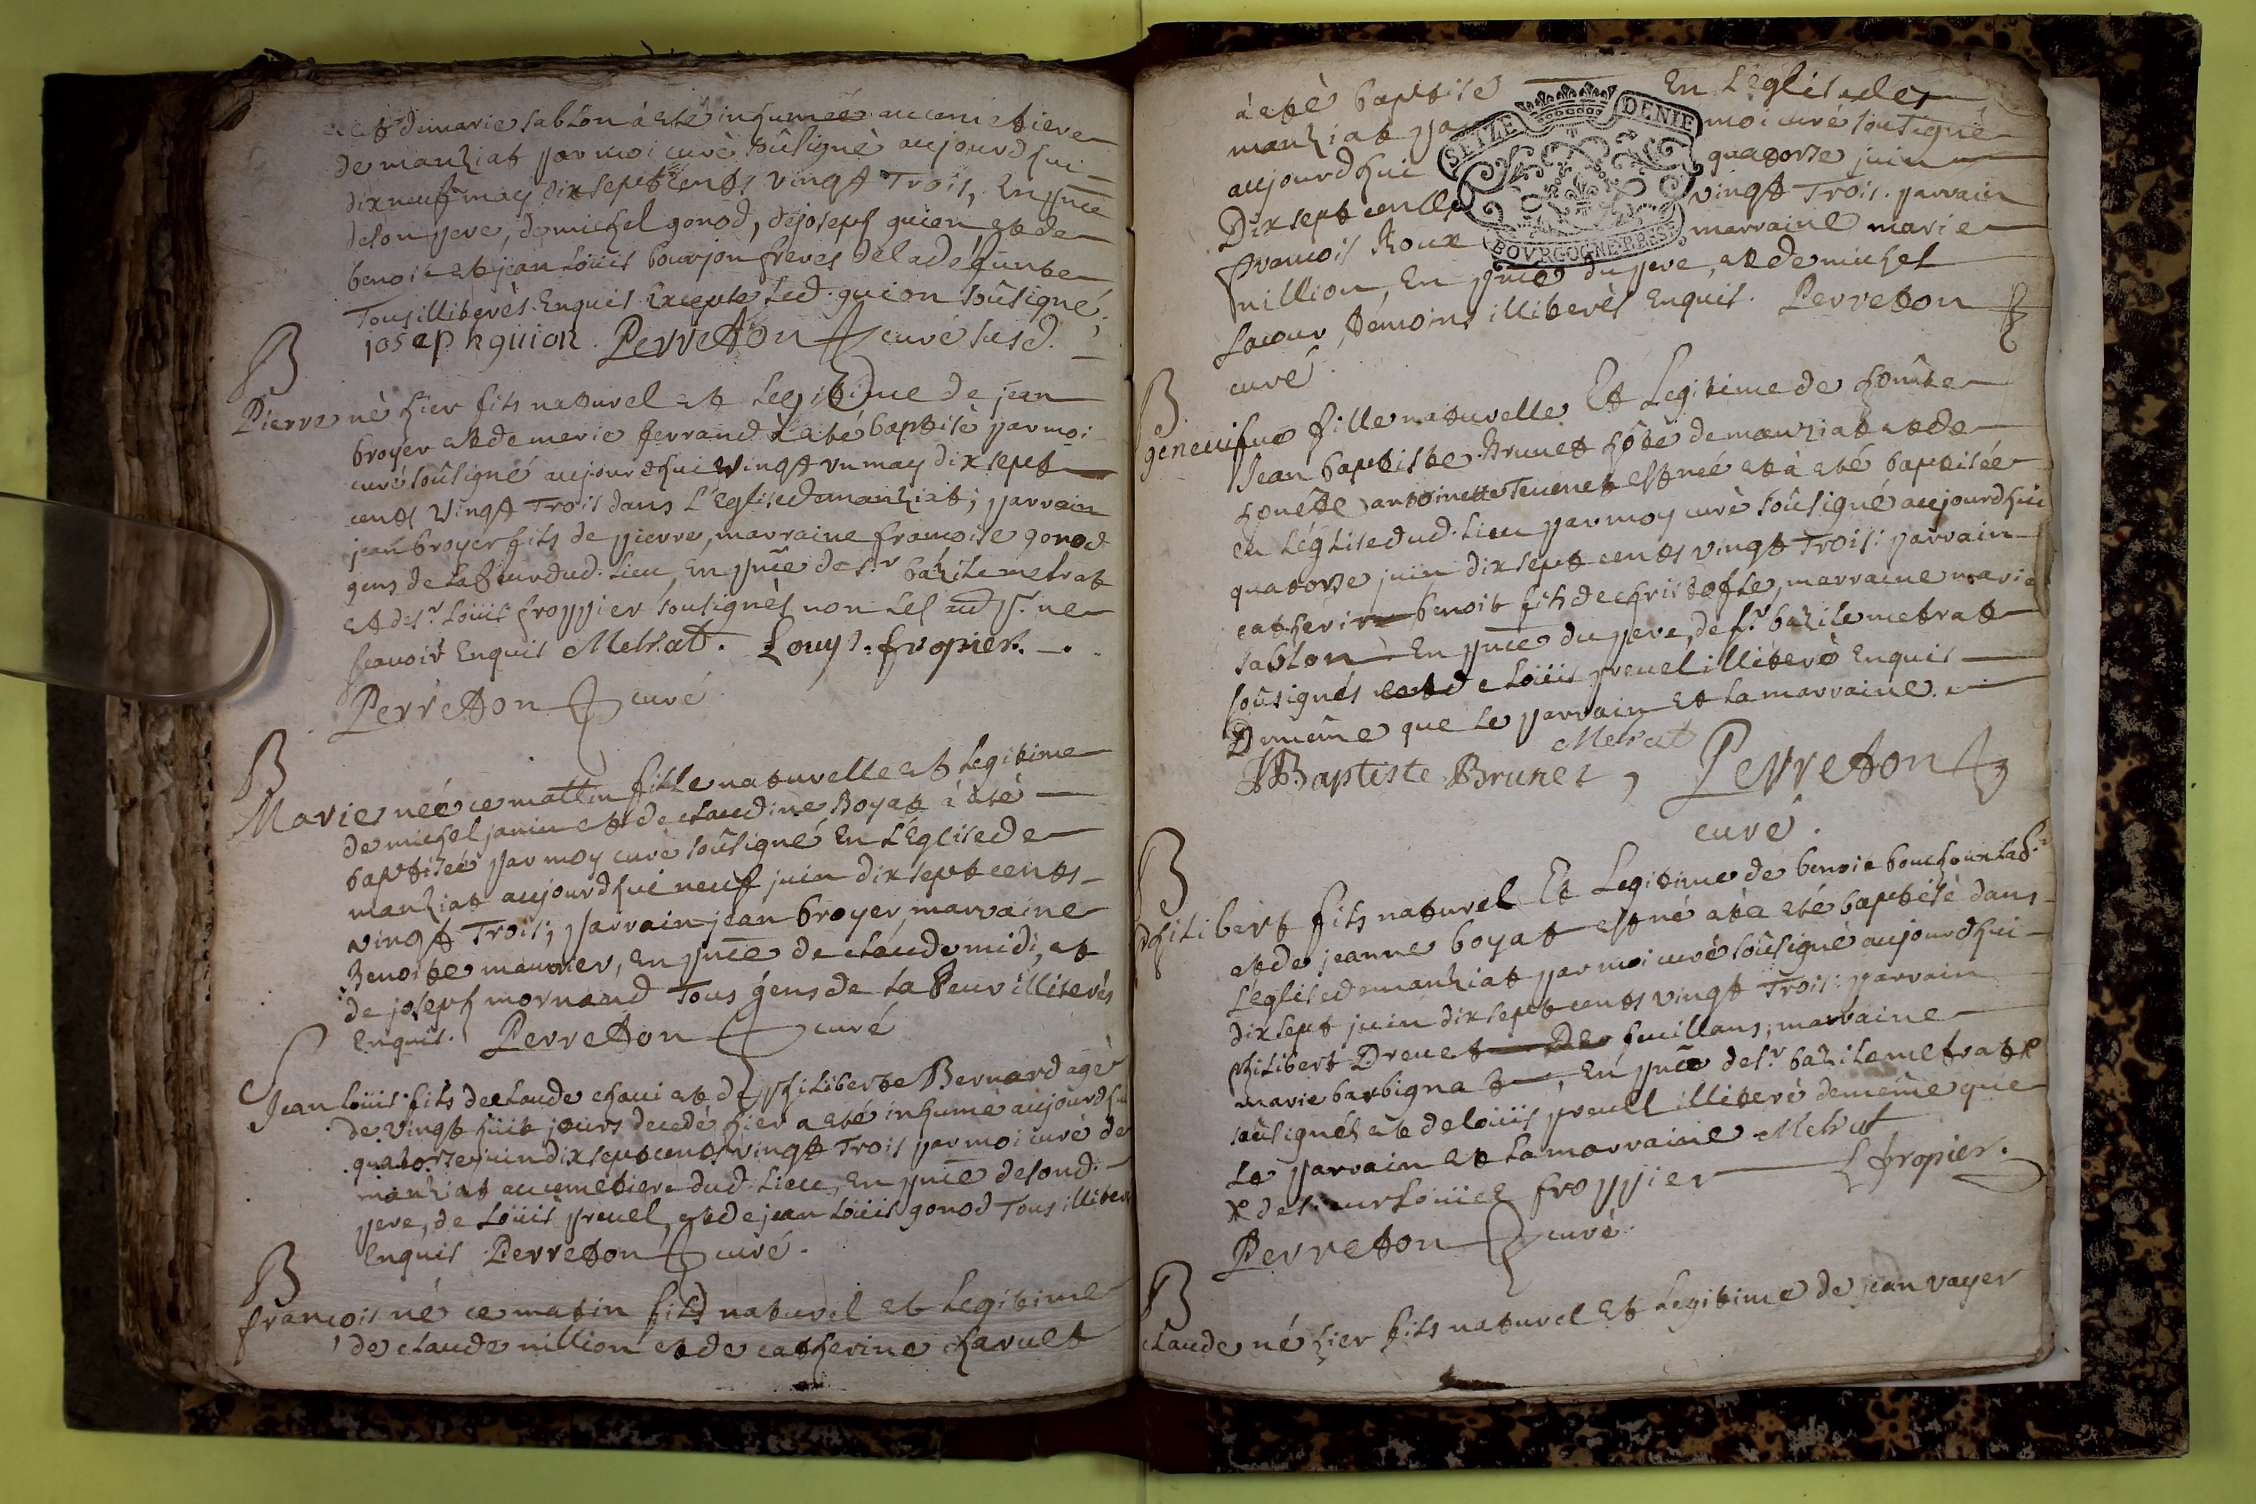 et de marie sablon à eté inhumeé au cimetiere
de manziat par moi curé soûsigné aujourdhui
dix neuf may dix sept cents vingt Trois, En pñce
de son pere, de michel gonod, de joseph guion et de
benoit et jean Loüis bourjon freres de la défunte
Tous illiterés Enquis Excepte led. guion soûsigné;
joseph guion. Perreton curé susd.
B
Pierre né hier fils naturel et Legitime de jean
broyer et de marie ferrand à eté baptisé par moi
curé soûsigné aujourdhui vingt un may dix sept
cents vingt Trois dans L'Eglise de manziat; parrain
jean broyer fils de pierre, marraine francoise gonod
gens de Labeur dud. Lieu, En pñce de sr. bazile metrat
et de sr. Loüis froppier sousignés non Les ad. p. ne
scavoir Enquis Metrat. Louys. fropier.
Perreton curé
B
Marie née ce mattin fille naturelle et Legitime
de michel janin et de claudine Boyat à eté
baptisée par moy curé soûsigné En L'Eglise de
manziat aujourdhui neuf juin dix sept cents
vingt Trois; parrain jean broyer, marraine
Benoite maunier, en pñce de claude midi, et
de joseph mornand Tous gens de Labeur illiterés
Enquis. Perreton curé
Jean Loüis fils de claude chavi et de philiberte Bernard agé
de vingt huit jours decedé hier a eté inhumé aujourdhui
quatorze juin dix sept cents vingt Trois par moi curé de
manziat au cimetiere dud. Lieu, En pñce de sond.
pere, de Loüis prevel, et de jean Loüis gonod Tous illiterés
Enquis Perreton curé.
B
francois né ce matin fils naturel et Legitime
de claude nillion et de catherine charvet
à eté baptisé En L'église de
manziat par moi curé sousigné
aujourdhui quatorze juin
Dix sept cents vingt Trois. parrain
francois Roux marraine marie
nillion, En pñce du pere, et de michel
Lacour, temoins illiterés Enquis. Perreton
curé.
SEIZE DENIE
BOVRGOGNE BRESSE
B
genevifve fille naturelle Et Legitime de honête
Jean baptiste Brunet hôte de manziat et de
honête antoinette Tevenet est née et à eté baptisée
en L'église dud. Lieu par moy curé soûsigné aujourdhui
quatorze juin dix sept cents vingt Trois: parrain
catherin benoit fils de christofle, marraine marie
sablon En pñce du pere, de sr. bazile metrat
soûsignés et de Loüis prevel illiteré Enquis
De même que Le parrain Et La marraine.
Metrat
JBaptiste Brunet, Perreton
curé.
B
philibert fils naturel Et Legitime de benoit bouchour
et de jeanne boyat est né et a eté baptisé dans
L'église de manziat par moi curé soûsigné aujourdhui
dix sept juin dix sept cents vingt Trois: parrain
philibert Drevet De feuillans, marraine
marie barbignat, En pñce de sr. bazile metrat
soûsignés et de Loüis prevel illiteré de même que
Le parrain et La marraine Metrat
de sieur Loüis froppier L fropier.
Perreton curé
B
claude né hier fils naturel Et Legitime de jean vayer